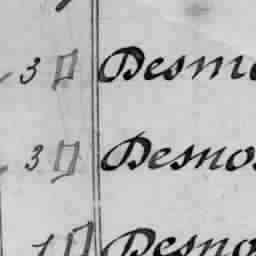 3 Desm
3 Desno
1 Desno